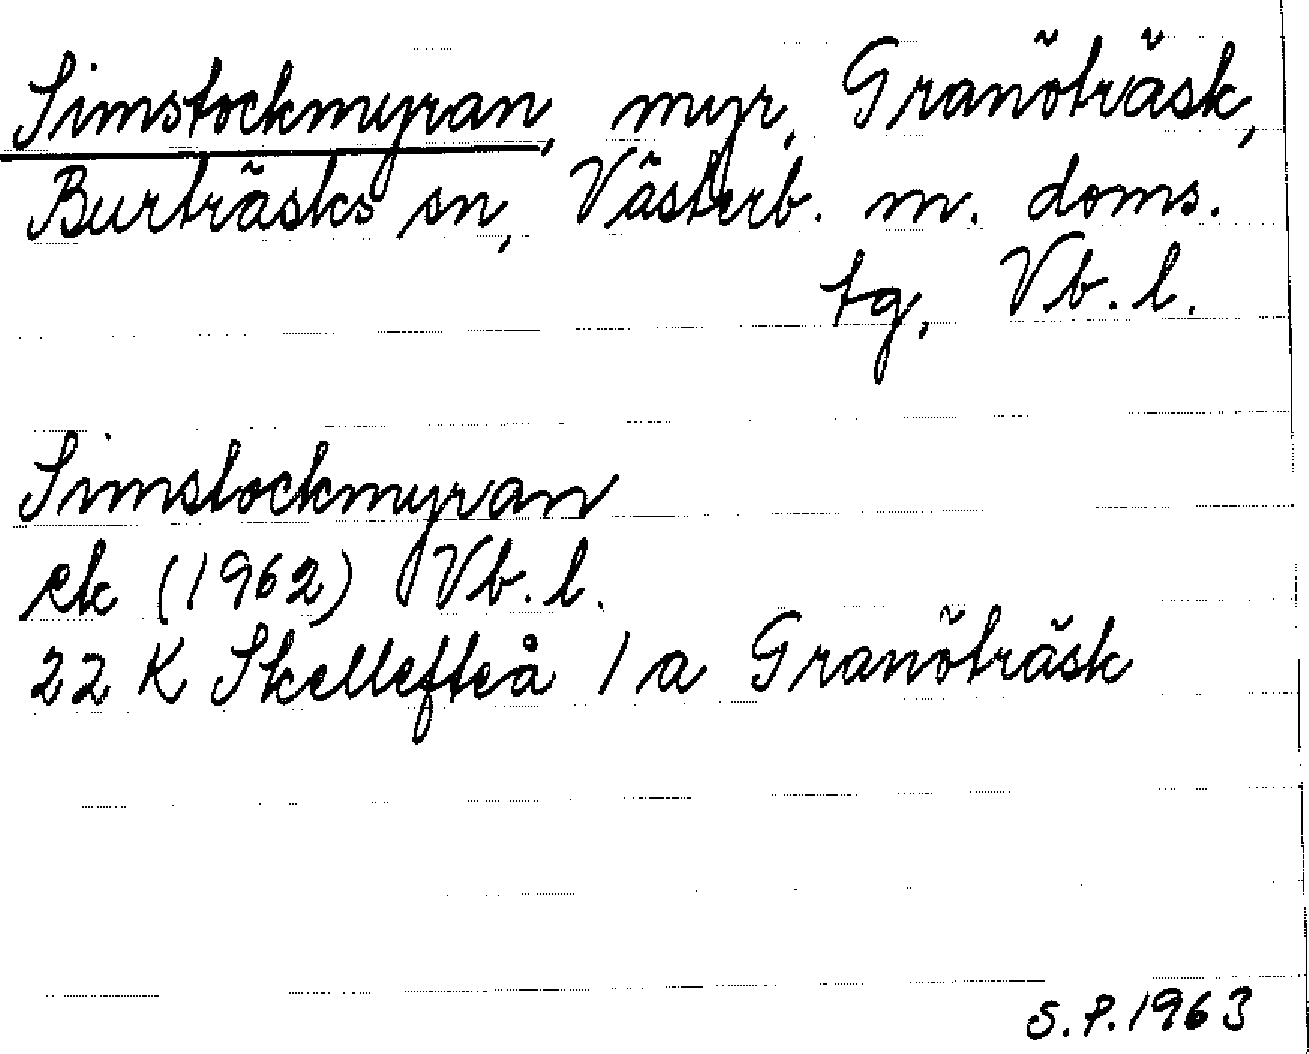 Simstockmyran, myr, Granöträsk,
Burträsks sn, Västerb. m. doms.
tg, Vb. l.
Simstockmyran
ek (1962) Vb. l.
22 K Skellefteå 1 a Granöträsk
S.P. 1963